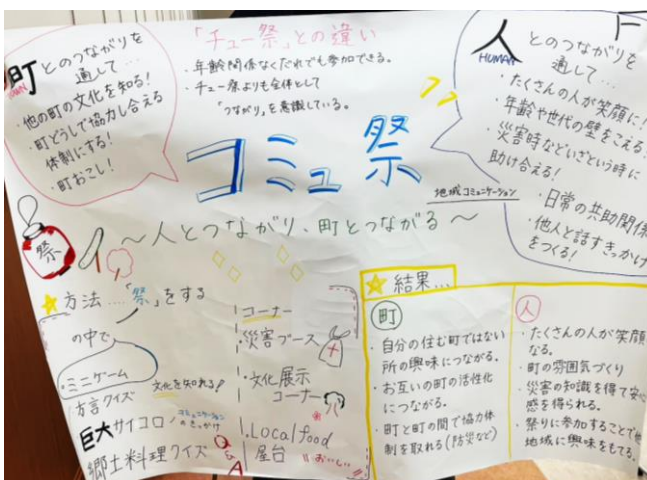 町
TOWN
とのつながりを
通して…
・他の町の文化を知る!
・町どうしで協力し合える
体制にする!
・町おこし!
「チュー祭」との違い
・年齢関係なくだれでも参加できる。
・チュー祭よりも全体として
「つながり」を意識している。
人
HUMAN
とのつながりを
通して…
・たくさんの人が笑顔に!
・年齢や世代の壁をこえる!
・災害時などいざという時に
助け合える!
・日常の共助関係
・他人と話すきっかけ
をつくる!
コミュ祭
地域コミュニケーション
〜人とつながり、町とつながる〜
祭
方法…「祭」をする
の中で
・ミニゲーム
文化を知れる!
方言クイズ
巨大サイコロ
コミュニケーション
のきっかけ
郷土料理クイズ
Q&A
コーナー
・災害ブース
・文化展示
コーナー
・Local food
屋台
おいしい!
結果…
町
・自分の住む町ではない
所の興味につながる。
・お互いの町の活性化
につながる。
・町と町の間で協力体
制を取れる(防災など)
人
・たくさんの人が笑顔
なる。
・町の雰囲気づくり
・災害の知識を得て安心
感を得られる。
・祭りに参加することで他
地域に興味をもてる。